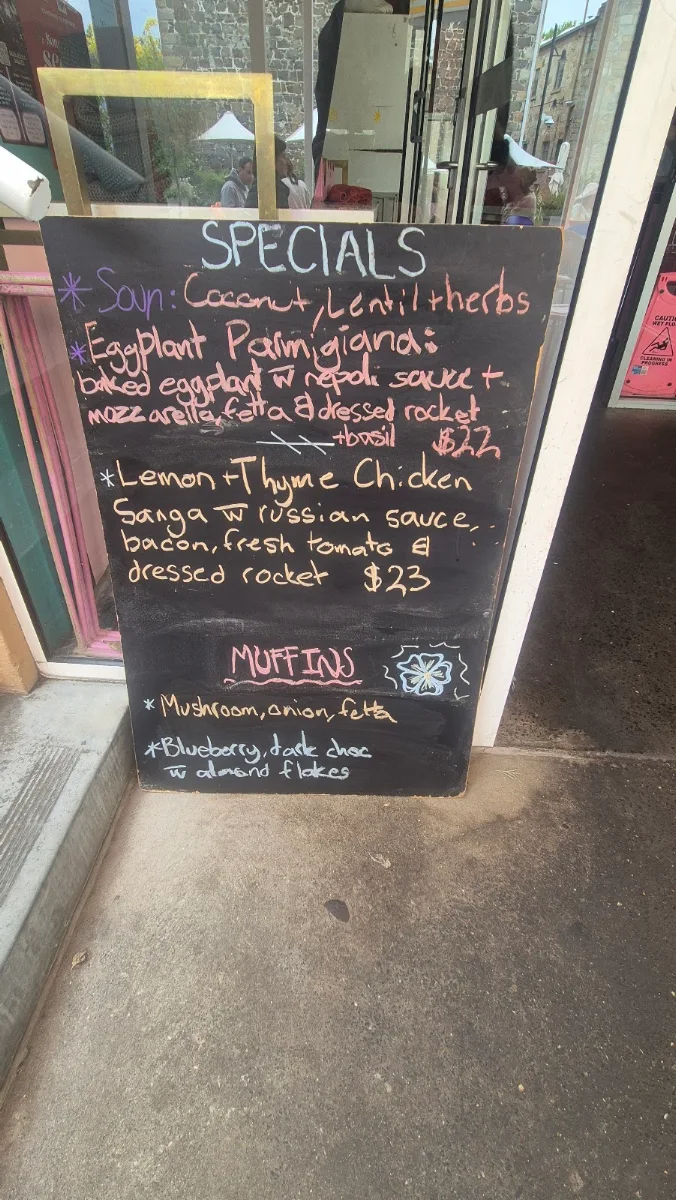 SPECIALS
* Soup: Coconut, Lentil + herbs
* Eggplant Parmigiana:
baked eggplant w̅ napoli sauce +
mozzarella, fetta & dressed rocket
+ basil $22
* Lemon + Thyme Chicken
Sanga w̅ russian sauce,
bacon, fresh tomato &
dressed rocket $23
MUFFINS
* Mushroom, onion, fetta
* Blueberry, dark choc
w̅ almond flakes
CAUTION
WET FLOOR
CLEANING IN
PROGRESS